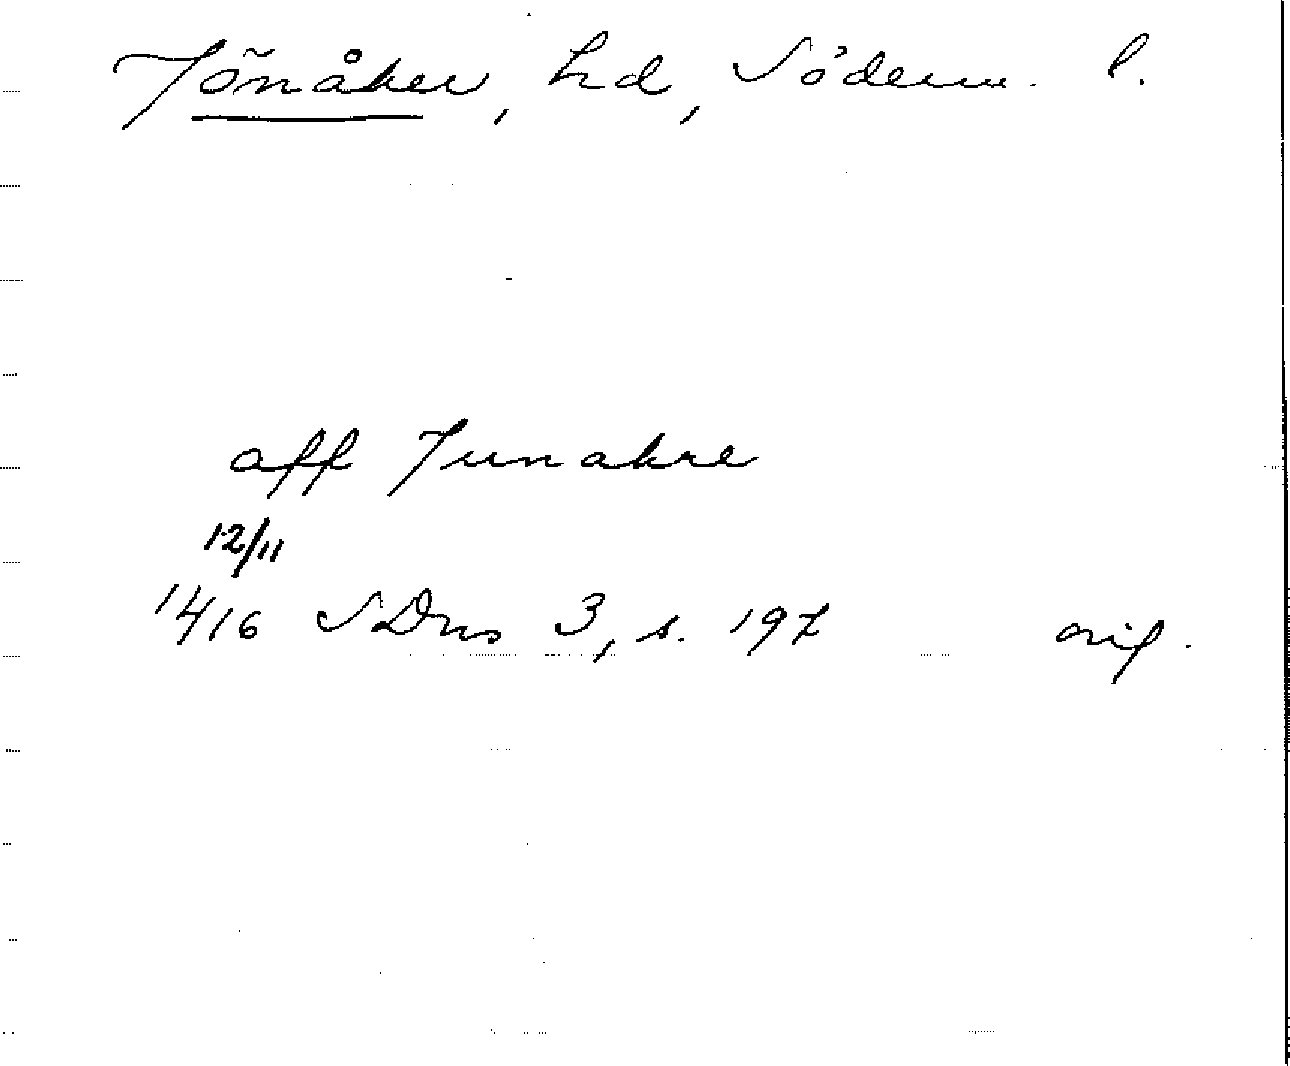 Jönåker, hd, Söderm. l.
aff Junakre
12/11
1416 SDns 3, s. 197 orig.